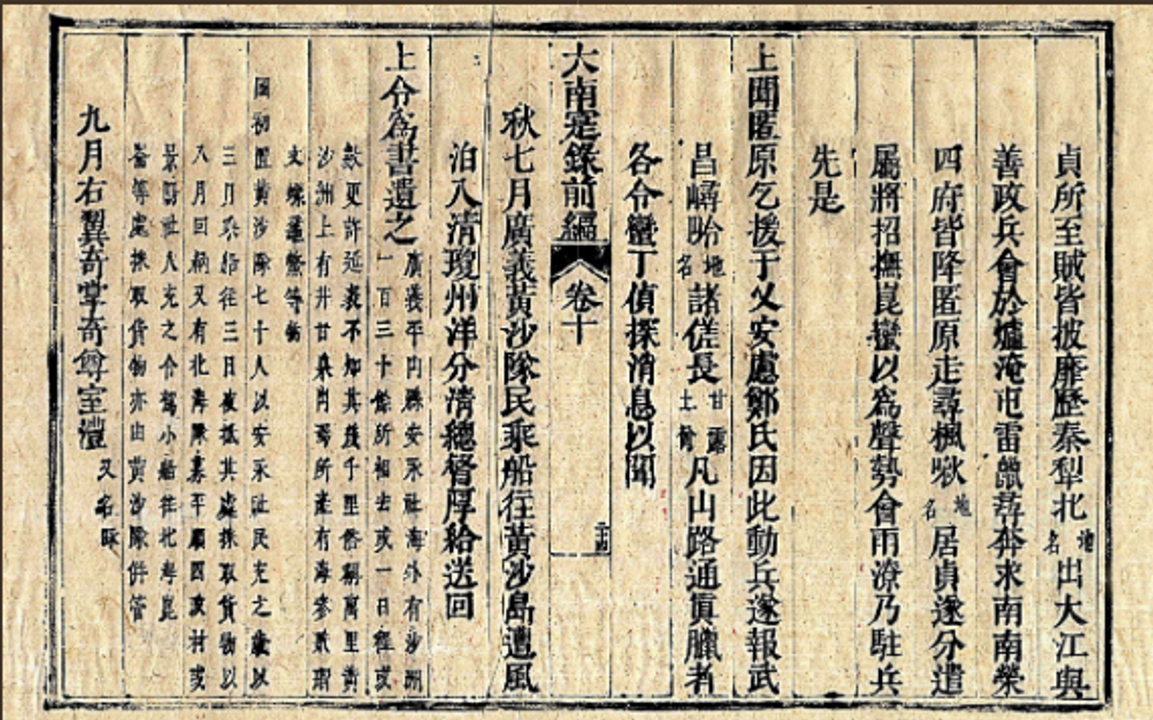 貞所至賊皆披靡歷秦犁北地名出大江與
善政兵會於爐淹屯雷奔求南南榮
四府皆降匿原走尋楓啾地名居貞遂分遣
屬將招撫崑蠻以為聲勢會雨潦乃駐兵
先是
上聞匿原乞援于乂安慮鄭氏因此動兵遂報武
昌㠊哈地名諸長甘露土酋凡山路通真臘者
各令蠻丁偵探消息以聞
大南寔錄前編 卷十 二十四
秋七月廣義黃沙隊民乘船往黃沙島遭風
泊入清瓊州洋分清總督厚給送回
上令為書遺之廣義平山縣安永社海外有沙洲
一百三十餘所相去或一日程或
數更許延袤不知其幾千里俗稱萬里黃
沙洲上有井甘泉出焉所產有海參玳瑁
文螺黿鱉等物
國初置黃沙隊七十人以安永社民充之歲以
三月乘船往三日夜抵其處採取貨物以
八月回納又有北海隊募平順四政村或
景陽社人充之令駕小船往北海崑
崙等處採取貨物亦由黃沙隊併管
九月右翼奇掌奇尊室澧又名